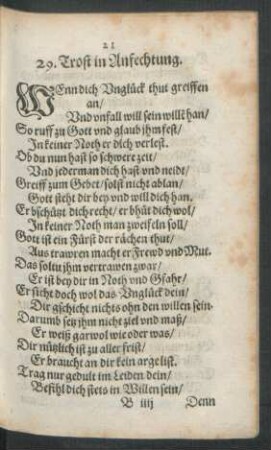 21
29. Trost in Anfechtung.
WEnn dich Vnglück thut greiffen
an/
Vnd vnfall will sein willn han/
So ruff zu Gott vnd glaub ihm fest/
In keiner Noth er dich verlest.
Ob du nun hast so schwere zeit/
Vnd jederman dich hast vnd neidt/
Greiff zum Gebet/ solst nicht ablan/
Gott steht dir bey vnd will dich han.
Er bschützt dich recht/ er bhüt dich wol/
In keiner Noth man zweifeln soll/
Gott ist ein Fürst der rächen thut/
Aus trawren macht er Frewd vnd Mut.
Das soltu ihm vertrawen zwar/
Er ist bey dir in Noth vnd Gfahr/
Er sicht doch wol das Vnglück dein/
Dir gschicht nichts ohn den willen sein.
Darumb setz ihm nicht ziel vnd maß/
Er weiß gar wol wie oder was/
Dir nützlich ist zu aller frist/
Er braucht an dir kein arge list.
Trag nur gedult im Leiden dein/
Befihl dich stets in Willen sein/
B iiij Denn